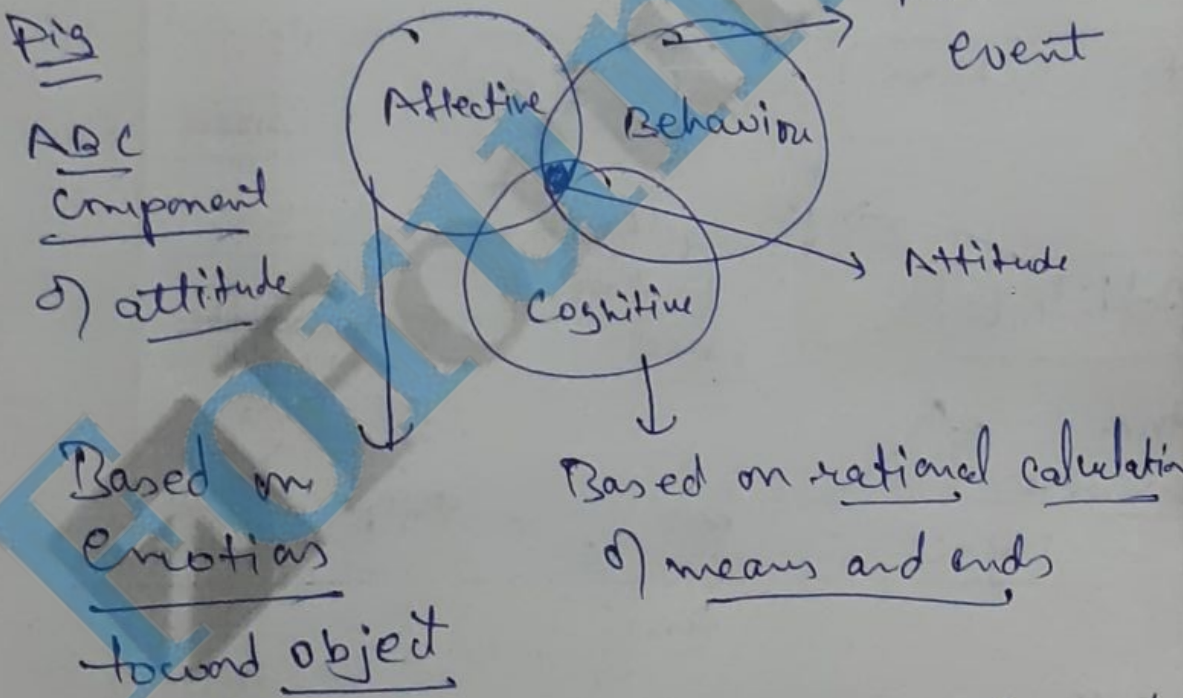 Fig
ABC
Component
of attitude
Affective
Behaviour
event
Attitude
Cognitive
Based on
emotions
toward object
Based on rational calculation
of means and ends
Forum